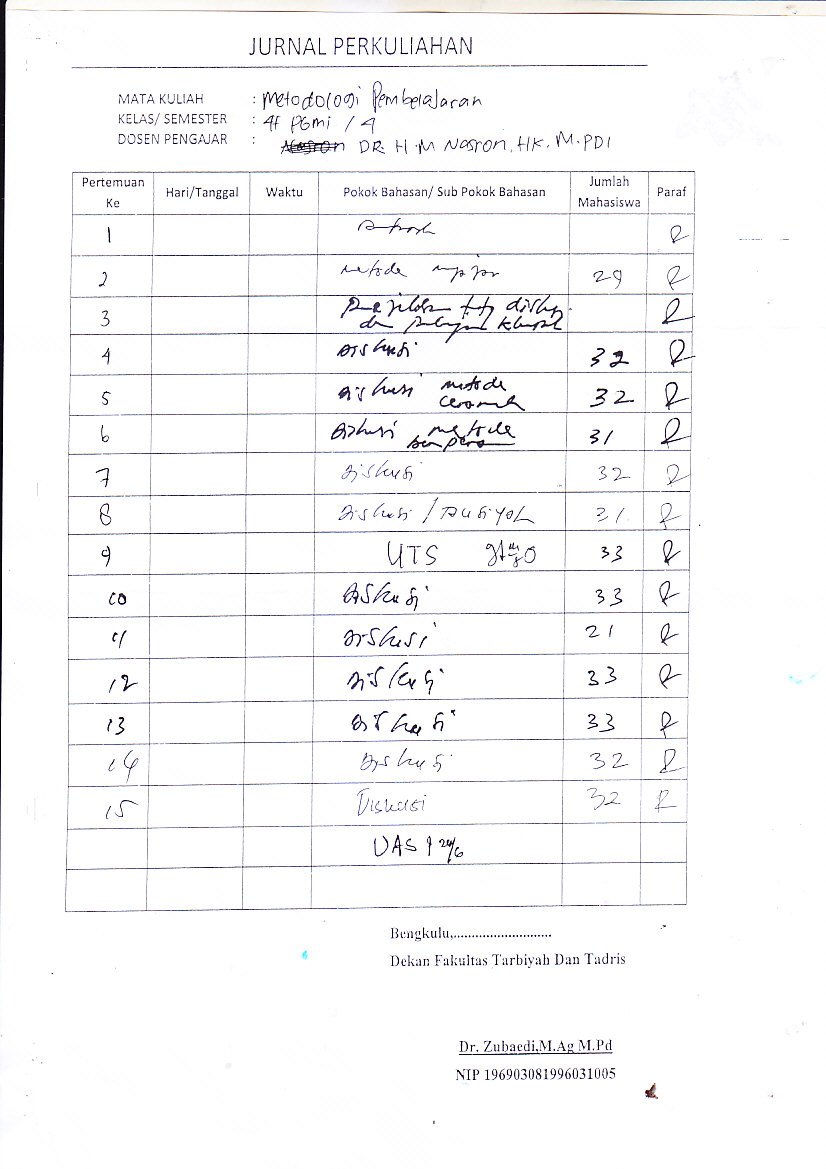 JURNAL PERKULIAHAN
MATA KULIAH : Metodologi Pembelajaran
KELAS/ SEMESTER : 4f PGmi / 4
DOSEN PENGAJAR : DR. H. M Nasron, HK. M.PDI
Pertemuan Ke Hari/Tanggal Waktu Pokok Bahasan/ Sub Pokok Bahasan Jumlah Mahasiswa Paraf
1
2 metode 29
3
4 Diskusi 32
5 Diskusi metode ceramah 32
6 Diskusi metode 31
7 Diskusi 32
8 Diskusi / 31
9 UTS 33
10 Diskusi 33
11 Diskusi 21
12 Diskusi 33
13 Diskusi 33
14 Diskusi 32
15 Diskusi 32
UAS
Bengkulu,...........................
Dekan Fakultas Tarbiyah Dan Tadris
Dr. Zubaedi,M.Ag M.Pd
NIP 196903081996031005